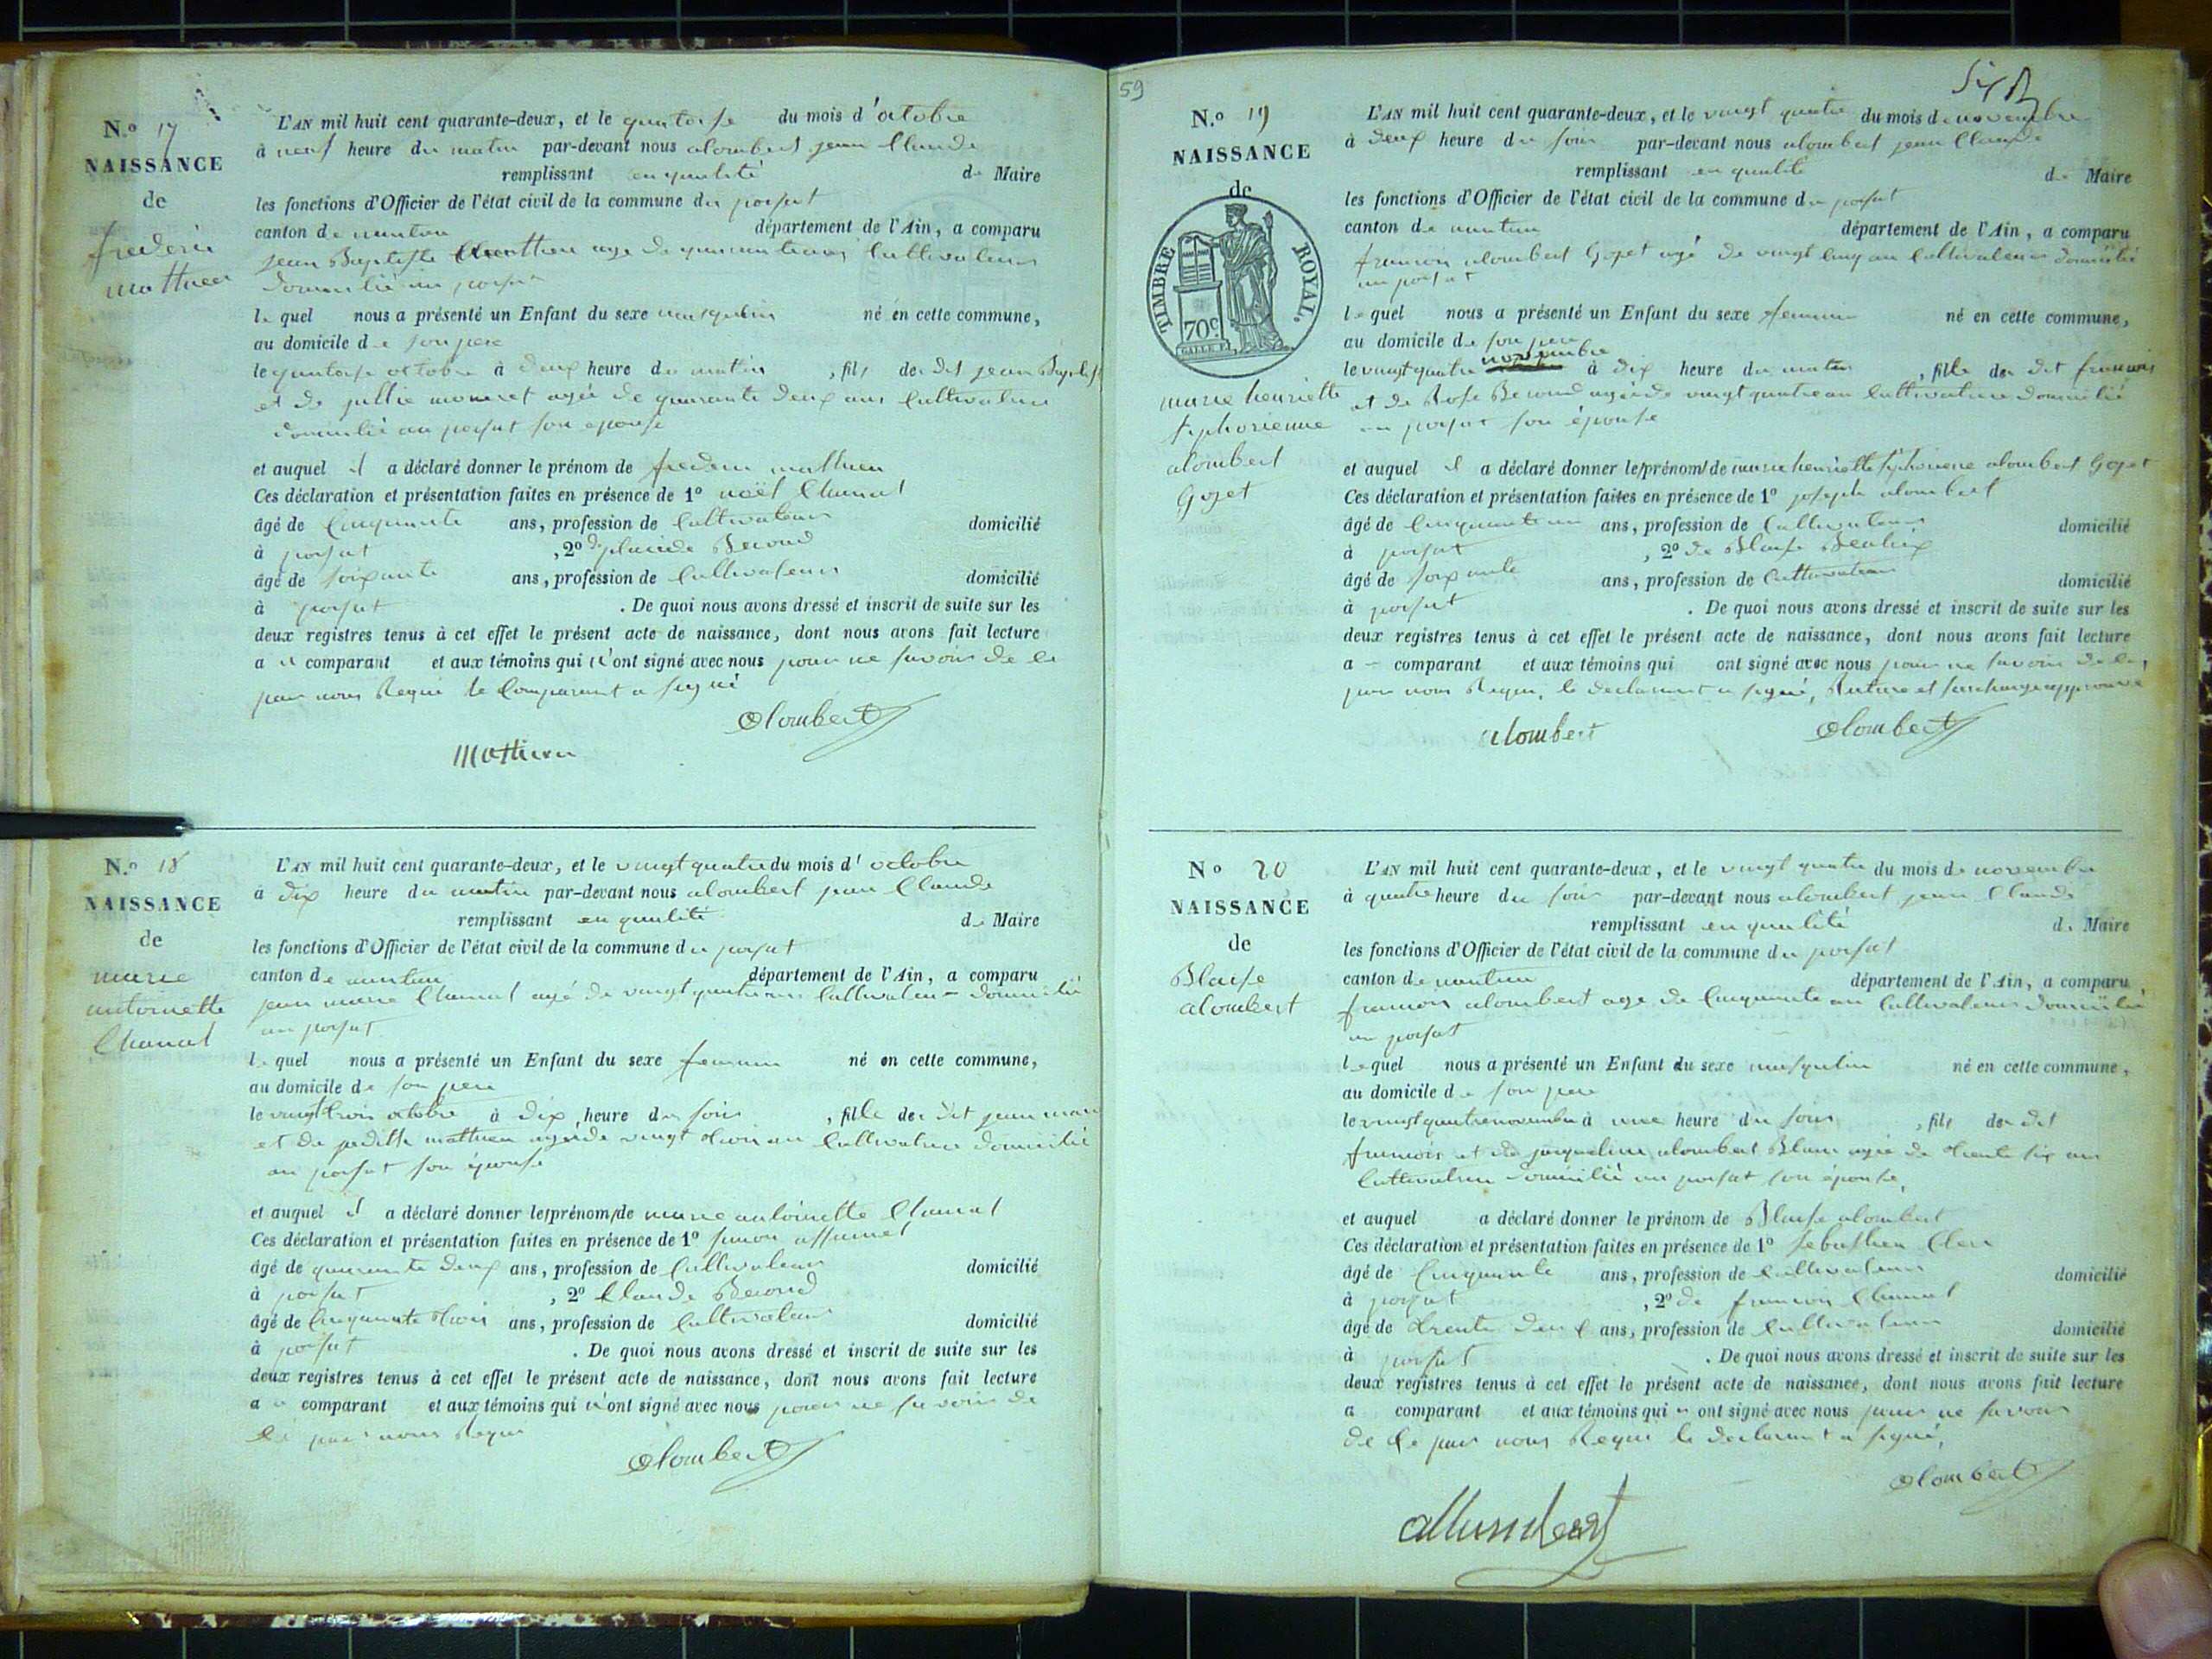 N.º 17
NAISSANCE
de
frederic
mathieu
L'AN mil huit cent quarante-deux, et le quatorse du mois d'octobre
à neuf heure du matin par-devant nous alombert jean Claude
remplissant en qualité de Maire
les fonctions d'Officier de l'état civil de la commune du poisat
canton de nantua département de l'Ain, a comparu
jean Baptiste mathieu age de quarante ans Cultivateur
domicilié au poisat
le quel nous a présenté un Enfant du sexe masqulin né en cette commune,
au domicile de son pere
le quatorse octobre à deux heure du matin , fils du dit jean Baptiste
et de jullie moneret agée de quarante deux ans Cultivatrice
domicilié au poisat son épouse
et auquel il a déclaré donner le prénom de frederic mathieu
Ces déclaration et présentation faites en présence de 1º noël Chanal
âgé de Cinquante ans, profession de Cultivateur domicilié
à poisat , 2º de placide Berond
âgé de soixante ans, profession de Cultivateur domicilié
à poisat . De quoi nous avons dressé et inscrit de suite sur les
deux registres tenus à cet effet le présent acte de naissance, dont nous avons fait lecture
a u comparant et aux témoins qui n'ont signé avec nous pour ne savoir de ce
par nous Requi le Comparant a signé
alombert
Mathieu
N.º 18
NAISSANCE
de
marie
antoinette
Chanal
L'AN mil huit cent quarante-deux, et le vingt quatre du mois d' octobre
à dix heure du matin par-devant nous alombert jean Claude
remplissant en qualité de Maire
les fonctions d'Officier de l'état civil de la commune du poisat
canton de nantua département de l'Ain, a comparu
jean marie Chanal agé de vingt quatre ans Cultivateur domicilié
au poisat
le quel nous a présenté un Enfant du sexe feminin né en cette commune,
au domicile de son pere
le vingt trois octobre à dix heure du soir , fille du dit jean marie
et de juditte mathieu agé de vingt trois an Cultivatrice domicilié
au poisat son épouse
et auquel il a déclaré donner les prénoms de marie antoinette Chanal
Ces déclaration et présentation faites en présence de 1º simon assumel
âgé de quarante deux ans, profession de Cultivateur domicilié
à poisat , 2º Claude Berond
âgé de Cinquante trois ans, profession de Cultivateur domicilié
à poisat . De quoi nous avons dressé et inscrit de suite sur les
deux registres tenus à cet effet le présent acte de naissance, dont nous avons fait lecture
a u comparant et aux témoins qui n'ont signé avec nous pour ne savoir de
ce par nous Requi
alombert
59
N.º 19
NAISSANCE
de
TIMBRE ROYAL.
70c
marie henriette
siphorienne
alombert
Goget
L'AN mil huit cent quarante-deux, et le vingt quatre du mois de novembre
à deux heure du soir par-devant nous alombert jean Claude
remplissant en qualité de Maire
les fonctions d'Officier de l'état civil de la commune du poisat
canton de nantua département de l'Ain, a comparu
francois alombert Goget agé de vingt Cinq an Cultivateur domicilié
au poisat
le quel nous a présenté un Enfant du sexe feminin né en cette commune,
au domicile de son pere
le vingt quatre novembre à dix heure du matin , fille du dit francois
et de Rose Berond agé de vingt quatre an Cultivatrice domicilié
au poisat son épouse
et auquel il a déclaré donner les prénoms de marie henriette siphorienne alombert Goget
Ces déclaration et présentation faites en présence de 1º joseph alombert
âgé de Cinquante un ans, profession de Cultivateur domicilié
à poisat , 2º de Blaise Beatrix
âgé de soixante ans, profession de Cultivateur domicilié
à poisat . De quoi nous avons dressé et inscrit de suite sur les
deux registres tenus à cet effet le présent acte de naissance, dont nous avons fait lecture
a comparant et aux témoins qui ont signé avec nous pour ne savoir de ce,
par nous Requi, le declarant a signé, Rature et surcharge approuvé
alombert alombert
Nº 20
NAISSANCE
de
Blaise
alombert
L'AN mil huit cent quarante-deux, et le vingt quatre du mois de novembre
à quatre heure du soir par-devant nous alombert jean Claude
remplissant en qualité de Maire
les fonctions d'Officier de l'état civil de la commune du poisat
canton de nantua département de l'Ain, a comparu
francois alombert age de Cinquante an Cultivateur domicilié
au poisat
le quel nous a présenté un Enfant du sexe masqulin né en cette commune,
au domicile de son pere
le vingt quatre novembre à une heure du soir , fils du dit
francois et de jaqueline alombert Blanc agée de trente six an
Cultivatrice domicilié au poisat son épouse,
et auquel a déclaré donner le prénom de Blaise alombert
Ces déclaration et présentation faites en présence de 1º sebastien Clerc
âgé de Cinquante ans, profession de Cultivateur domicilié
à poisat , 2º de francois Chanal
âgé de trente deux ans, profession de Cultivateur domicilié
à poisat . De quoi nous avons dressé et inscrit de suite sur les
deux registres tenus à cet effet le présent acte de naissance, dont nous avons fait lecture
a comparant et aux témoins qui n ont signé avec nous pour ne savoir
de ce par nous Requi le declarant a signé,
alombert
allumbert